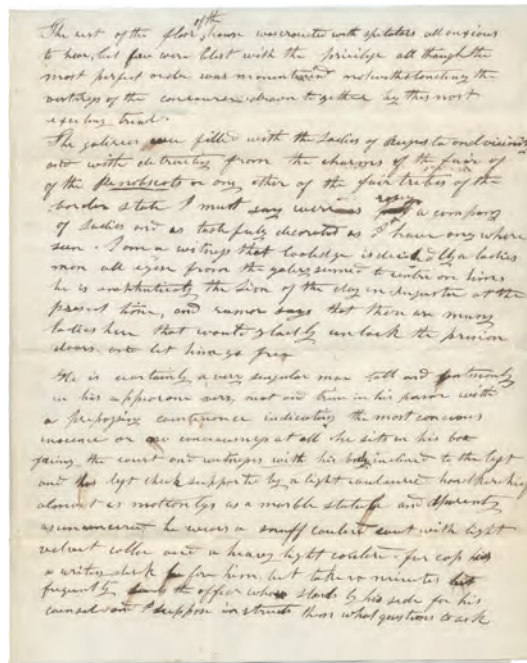 The rest of the floor of the house was crouded with spectators all anxious
to hear, but few were blest with the privilige all though the
most perfect order was maintained notwithstanding the
of the concourse drawn together by this most
exciting trial.
The galeries were filled with the Ladies of Augusta and vicinity
and with detracting from the charms of the fair of
of the Penobscots or any other of the fair tribes of the
border state I must say were as a company
of Ladies and as tastefully decorated as I have any where
seen. I am a witness that Coolidge is decidedly a ladies
man all eyes from the galery seemed to centre on him
he is emphaticaly the Lion of the day in Augusta at the
present time, and rumor says that there are many
ladies here that would gladly unlock the prison
doors and let him go free
He is certainly a very singular man tall and
in his neat and trim in his person with
a countenance indicating the most concious
inocence or no conciousness at all he sits in his box
facing the court and witnesses with his body inclined to the left
and his left cheek supported by a light couloured
almost as motionlys as a marble statute and aparently
as unconcerned he wears a snuff coulered coat with light
velvet coller and a heavy light couler fur cap has
a writing desk before him, but takes no minutes but
frequently the officer who stands by his side for his
counsel and I suppose instructs them what questions to ask